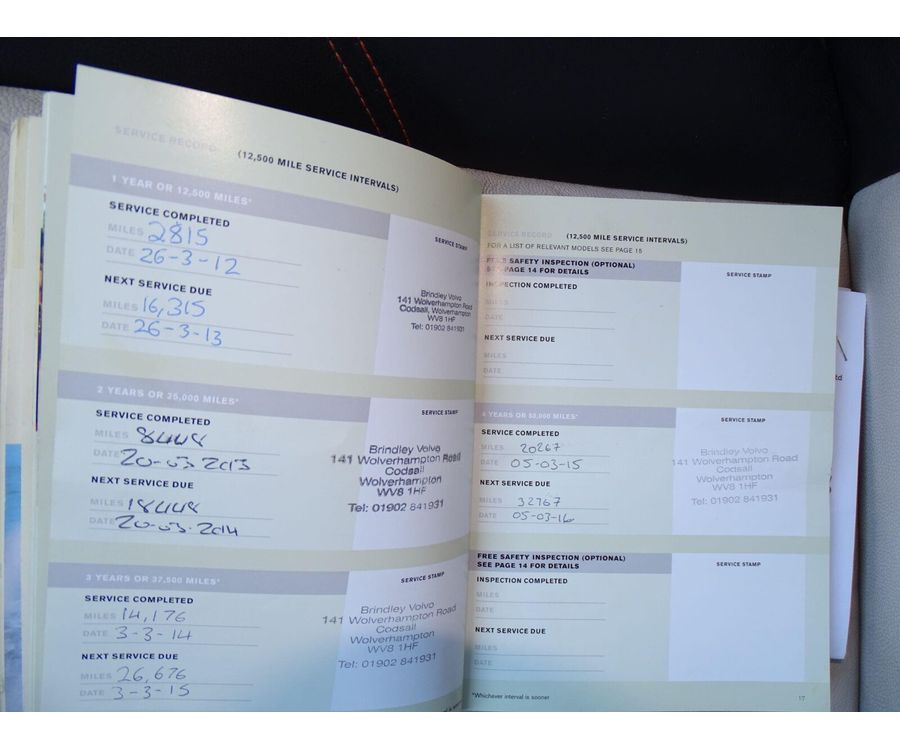 SERVICE RECORD (12,500 MILE SERVICE INTERVALS)
1 YEAR OR 12,500 MILES*
SERVICE COMPLETED
MILES 2815
DATE 26-3-12
NEXT SERVICE DUE
MILES 16,315
DATE 26-3-13
SERVICE STAMP
Brindley Volvo
141 Wolverhampton Road
Codsall, Wolverhampton
WV8 1HF
Tel: 01902 841931
2 YEARS OR 25,000 MILES*
SERVICE COMPLETED
MILES 8448
DATE 20-03-2013
NEXT SERVICE DUE
MILES 18448
DATE 20-03-2014
SERVICE STAMP
Brindley Volvo
141 Wolverhampton Road
Codsall
Wolverhampton
WV8 1HF
Tel: 01902 841931
3 YEARS OR 37,500 MILES*
SERVICE COMPLETED
MILES 14,176
DATE 3-3-14
NEXT SERVICE DUE
MILES 26,676
DATE 3-3-15
SERVICE STAMP
Brindley Volvo
141 Wolverhampton Road
Codsall
Wolverhampton
WV8 1HF
Tel: 01902 841931
SERVICE RECORD (12,500 MILE SERVICE INTERVALS)
FOR A LIST OF RELEVANT MODELS SEE PAGE 15
FREE SAFETY INSPECTION (OPTIONAL)
SEE PAGE 14 FOR DETAILS
INSPECTION COMPLETED
MILES
DATE
NEXT SERVICE DUE
MILES
DATE
SERVICE STAMP
4 YEARS OR 50,000 MILES*
SERVICE COMPLETED
MILES 20267
DATE 05-03-15
NEXT SERVICE DUE
MILES 32767
DATE 05-03-16
SERVICE STAMP
Brindley Volvo
141 Wolverhampton Road
Codsall
Wolverhampton
WV8 1HF
Tel: 01902 841931
FREE SAFETY INSPECTION (OPTIONAL)
SEE PAGE 14 FOR DETAILS
INSPECTION COMPLETED
MILES
DATE
NEXT SERVICE DUE
MILES
DATE
SERVICE STAMP
*Whichever interval is sooner
17
td